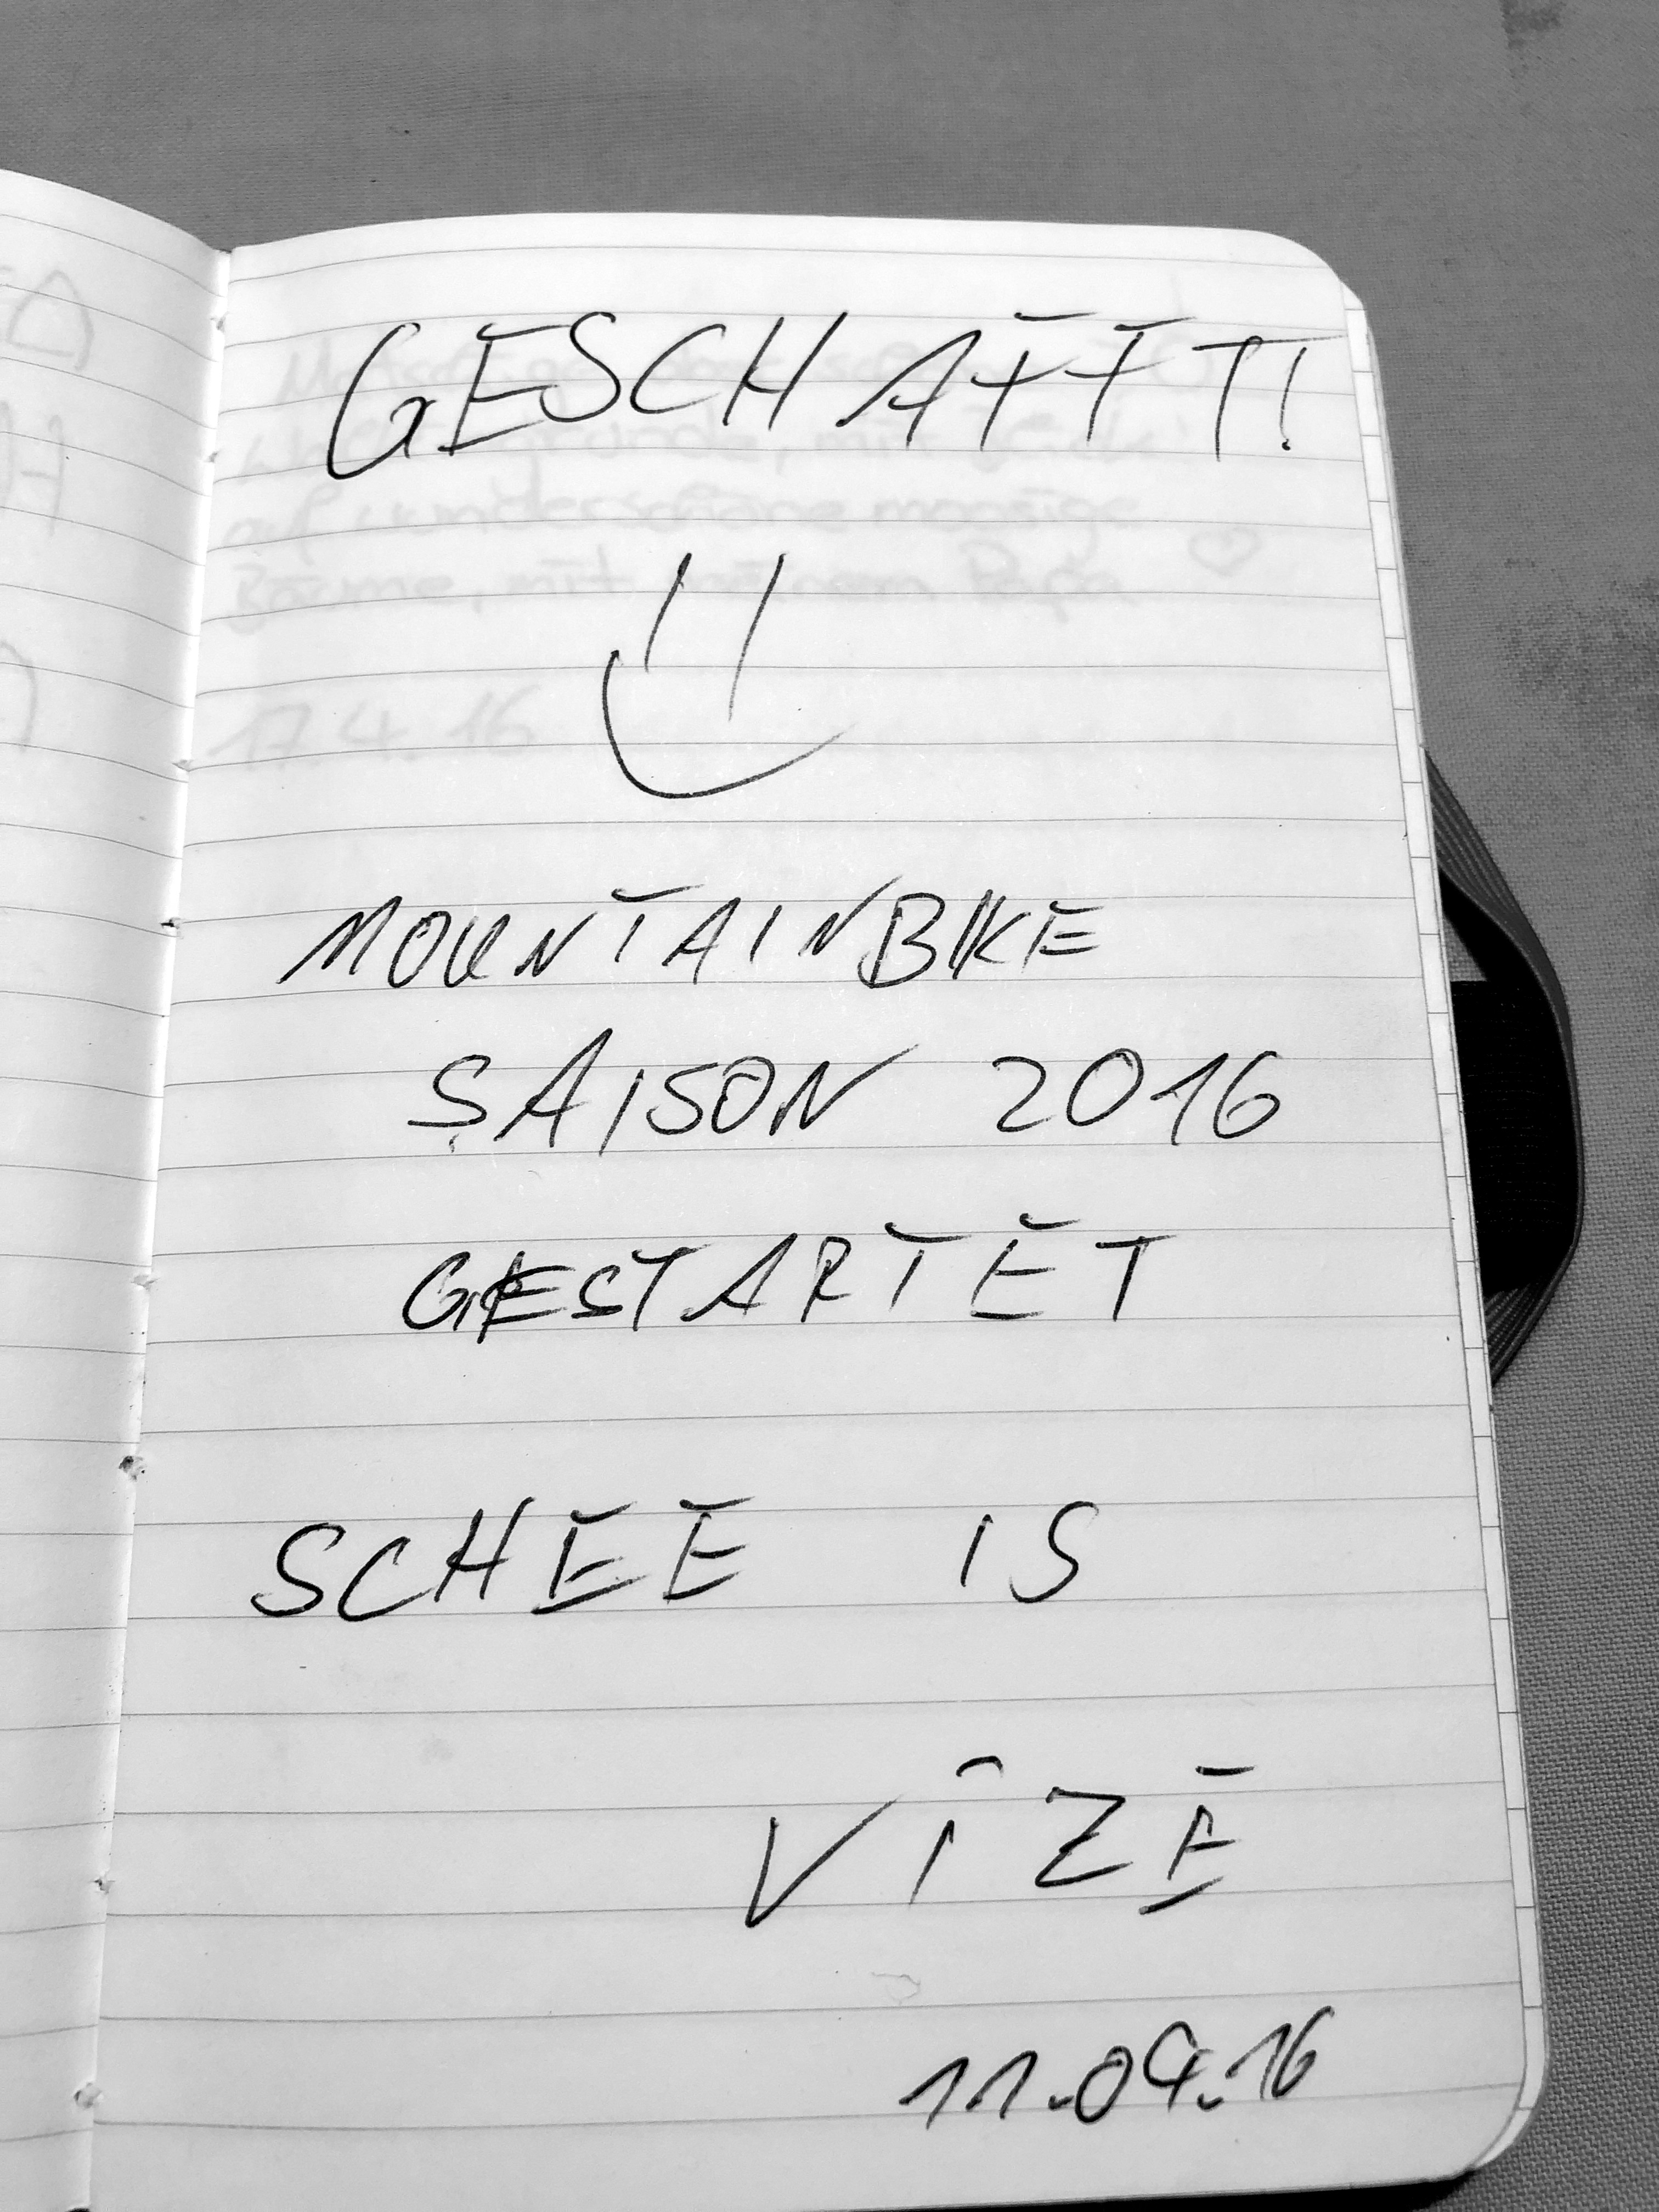 GESCHAFFT!
MOUNTAINBIKE
SAISON 2016
GESTARTET
SCHEE IS
VIZE
11.04.16
17.4.16